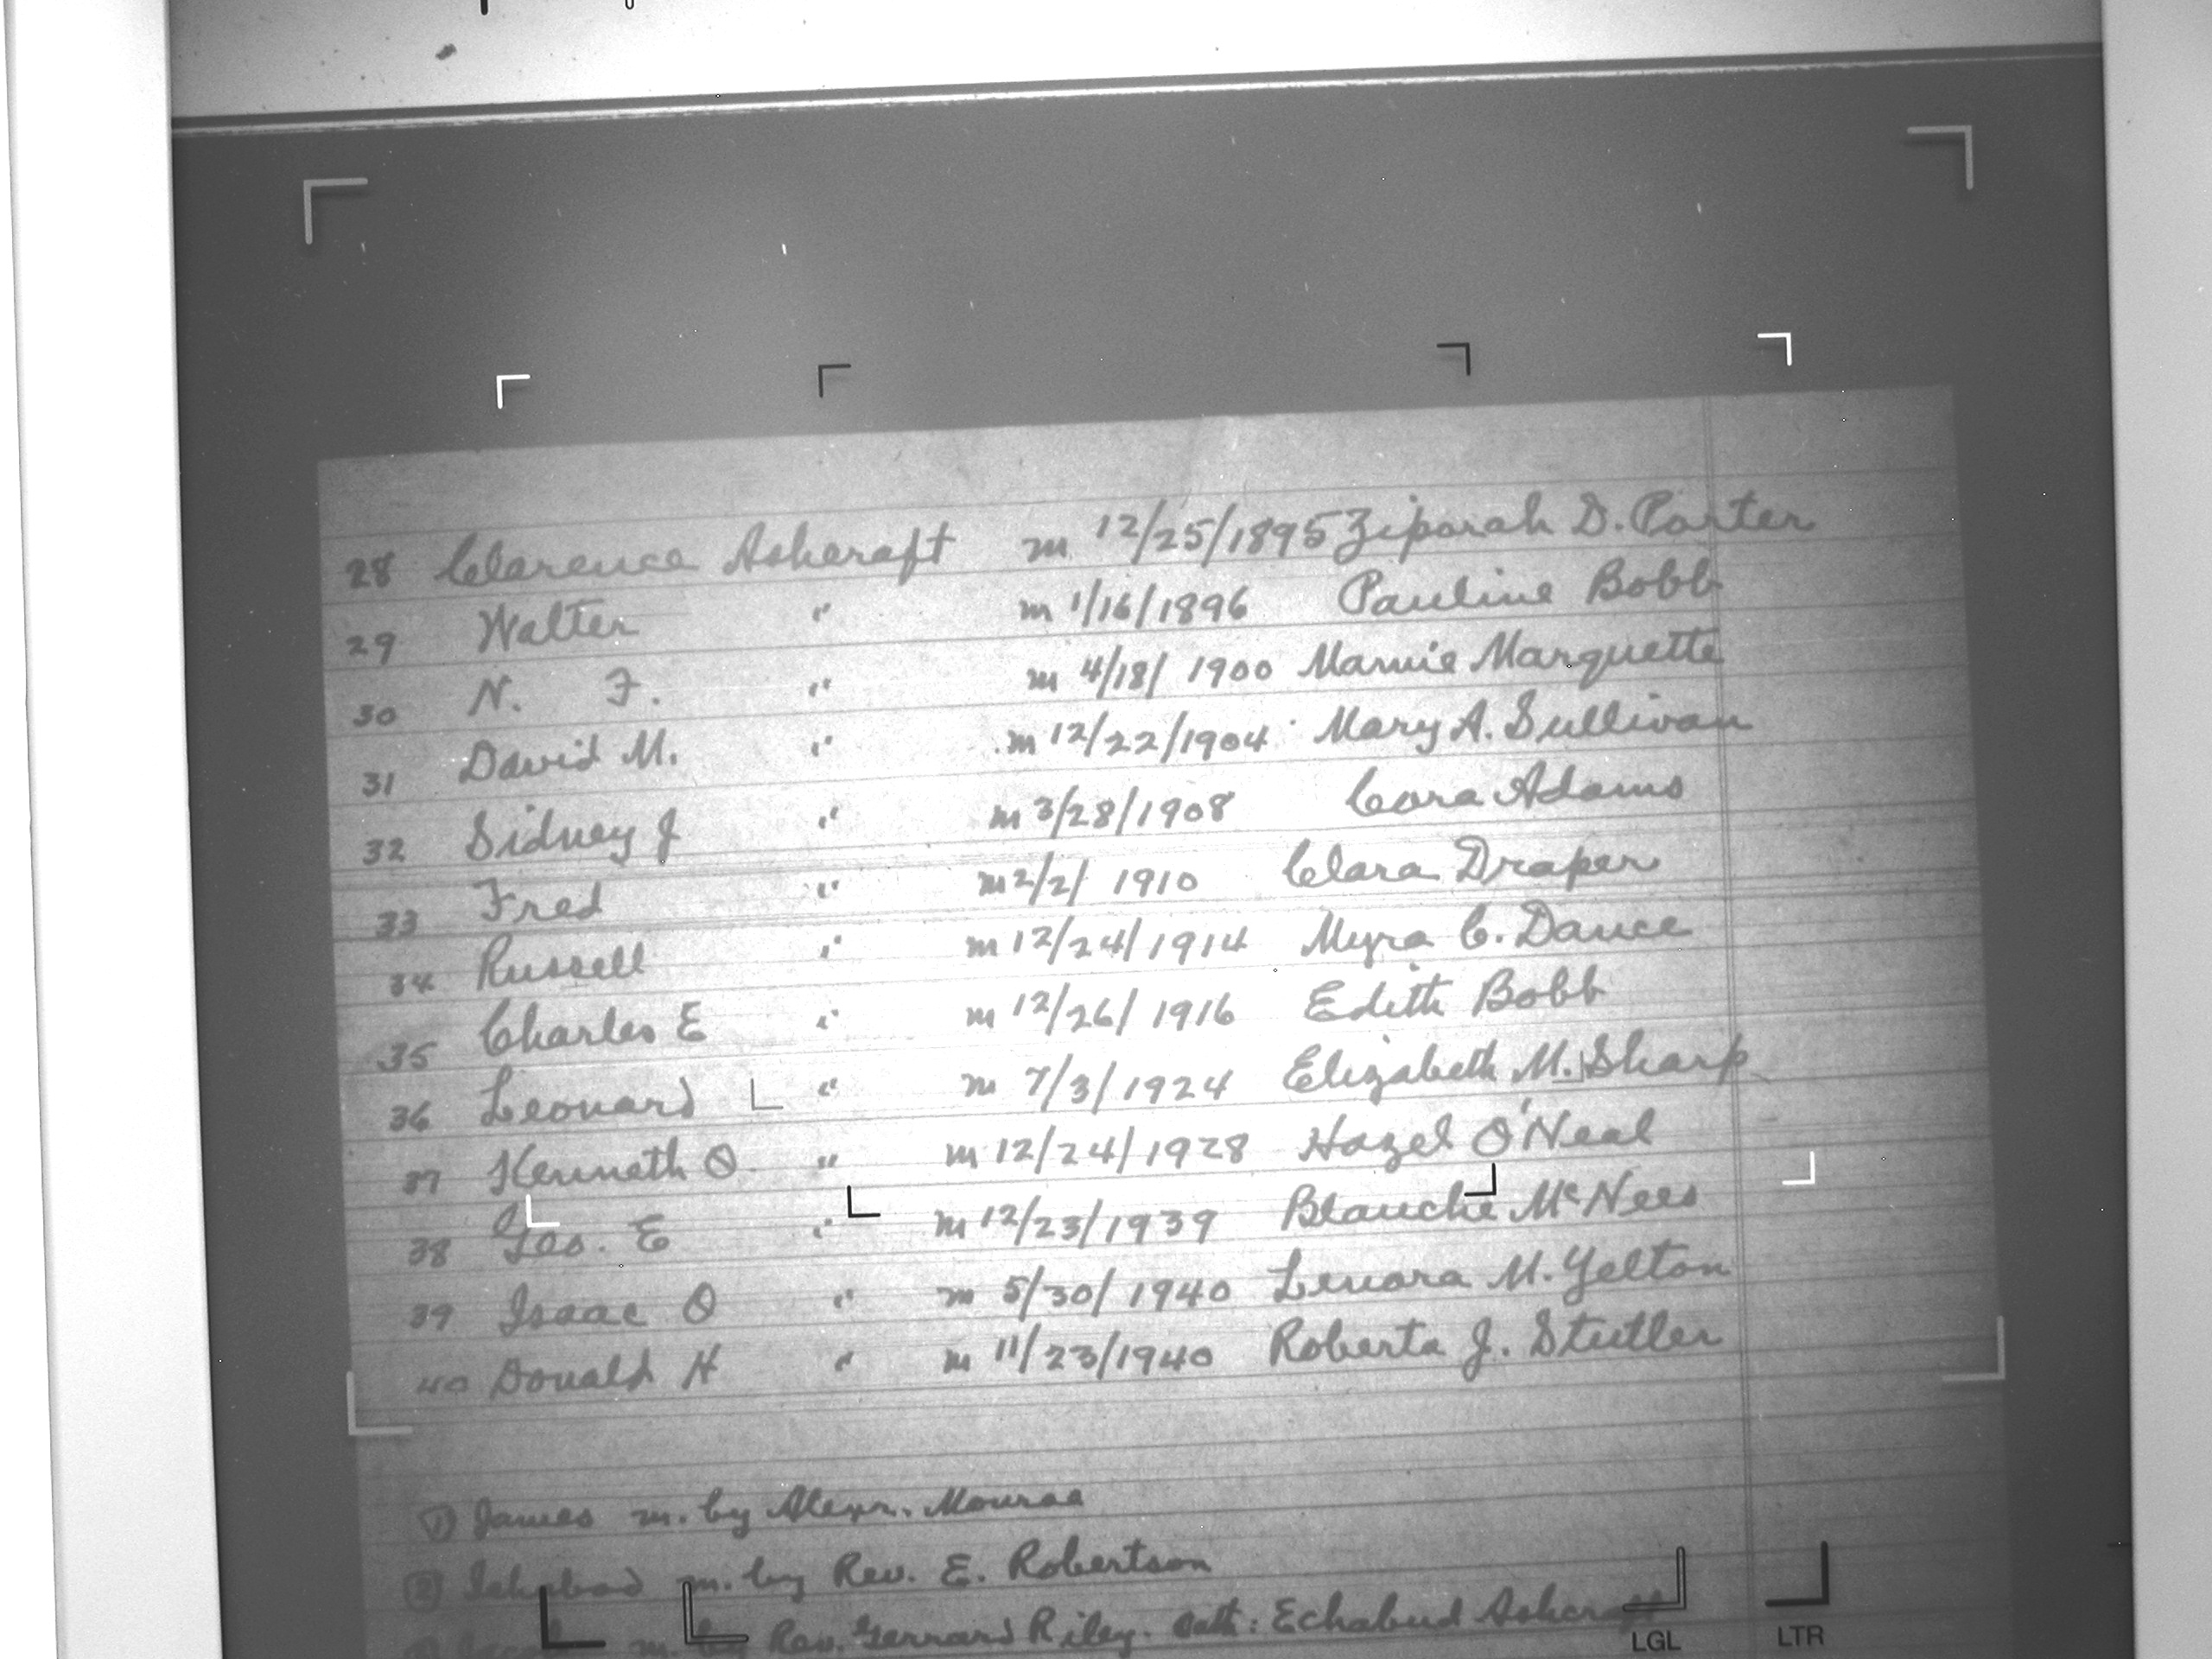 28 Clarence Ashcraft m 12/25/1895 Ziporah D. Porter
29 Walter " m 1/16/1896 Pauline Bobb
30 N. F. " m 4/18/1900 Mamie Marquette
31 David M. " m 12/22/1904 Mary A. Sullivan
32 Sidney J " m 3/28/1908 Cora Adams
33 Fred " m 2/2/1910 Clara Draper
34 Russell " m 12/24/1914 Myra C. Dance
35 Charles E " m 12/26/1916 Edith Bobb
36 Leonard " m 7/3/1924 Elizabeth M. Sharp
37 Kenneth O " m 12/24/1928 Hazel O'Neal
38 Geo. E " m 12/23/1939 Blanche McNees
39 Isaac O " m 5/30/1940 Lenora M. Yelton
40 Donald H " m 11/23/1940 Roberta J. Stutler
① James m. by Alexr. Monroe
② Ichabod m. by Rev. E. Robertson
m. by Rev. Gerrard Riley. Oath: Echabud Ashcraft
LGL LTR